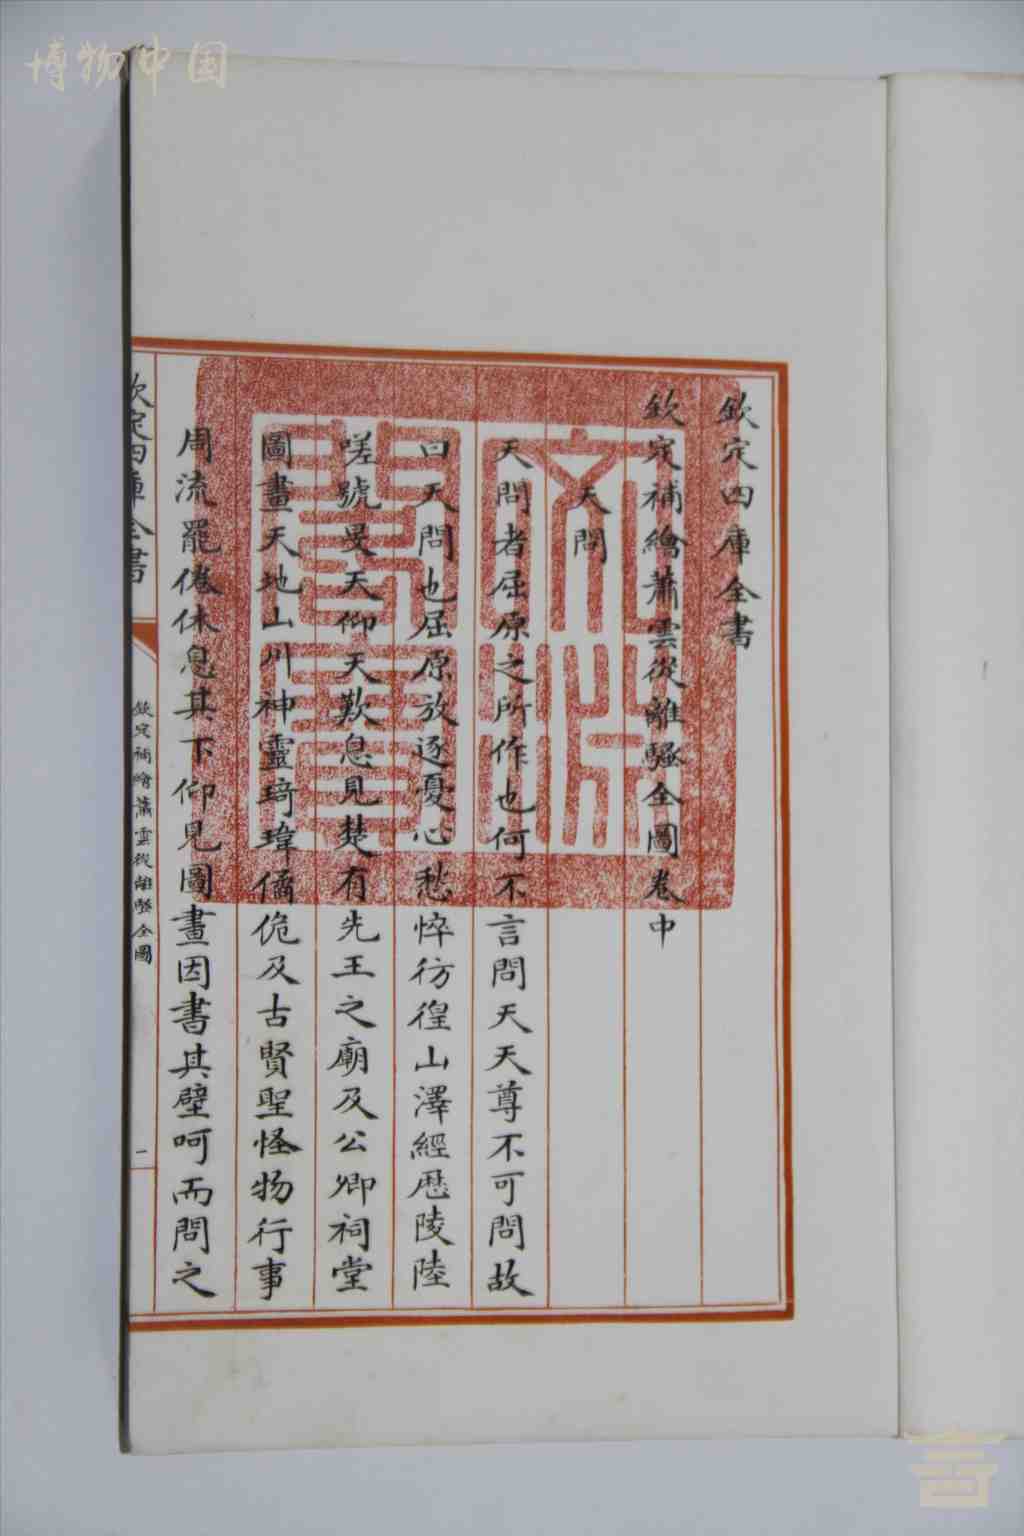 博物中国
欽定四庫全書
欽定補繪蕭雲從離騷全圖卷中
天問
天問者屈原之所作也何不言問天天尊不可問故
曰天問也屈原放逐憂心愁悴彷徨山澤經歷陵陸
嗟號旻天仰天歎息見楚有先王之廟及公卿祠堂
圖畫天地山川神靈琦瑋僪佹及古賢聖怪物行事
周流罷倦休息其下仰見圖畫因書其壁呵而問之
欽定四庫全書
欽定補繪蕭雲從離騷全圖
一
文淵閣寶